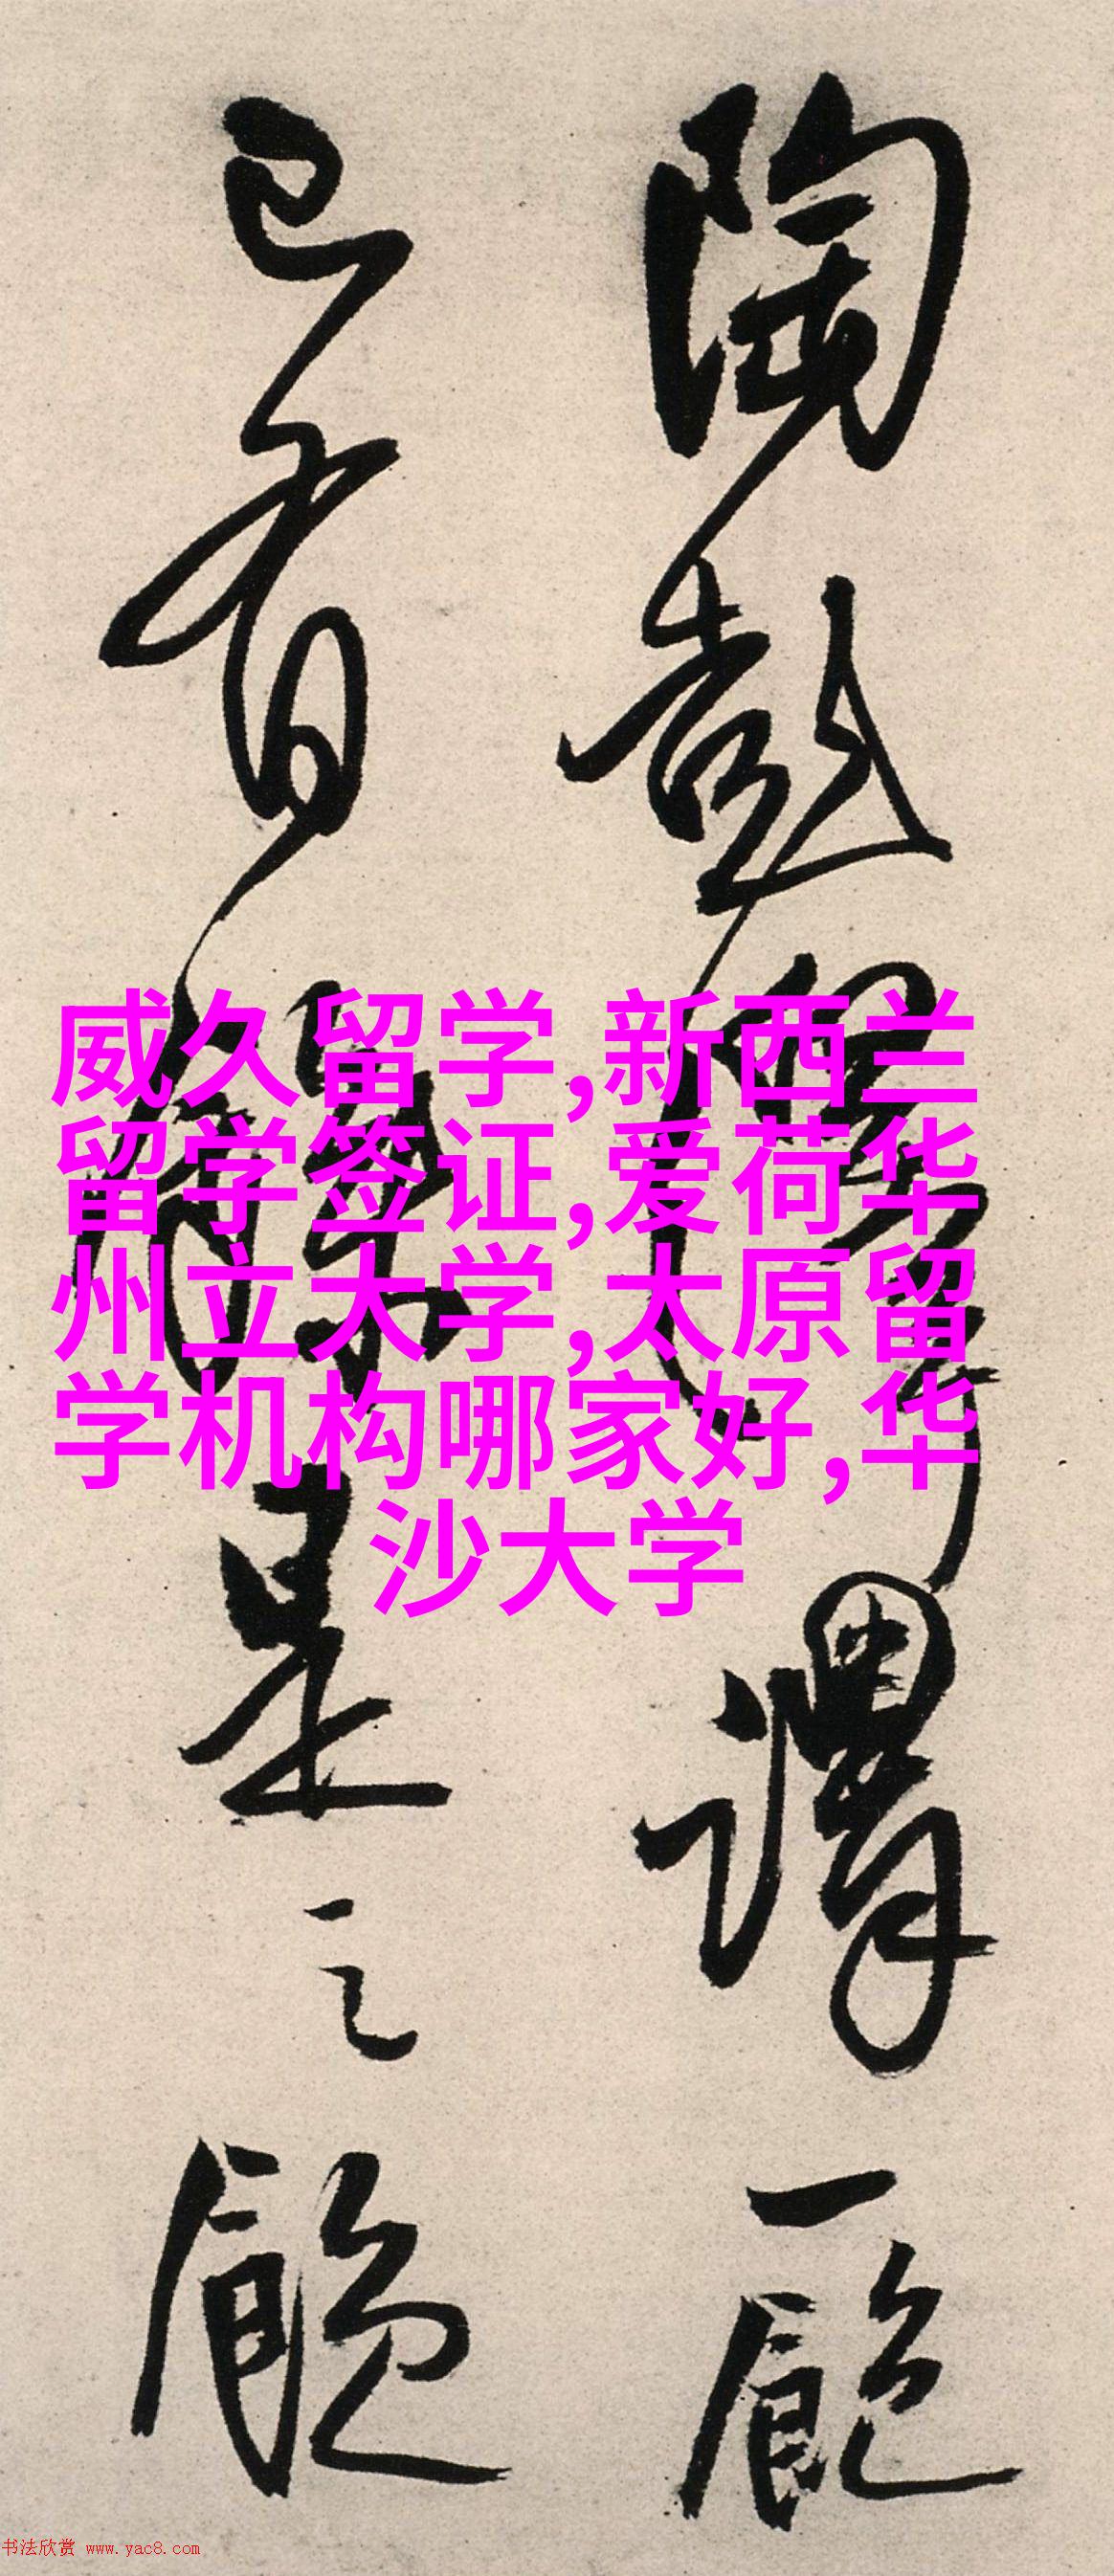 陶彭澤謂一飽
已有是之
威久留学,新西兰
留学签证,爱荷华
州立大学,太原留
学机构哪家好,华
沙大学
书法欣赏 www.yac8.com